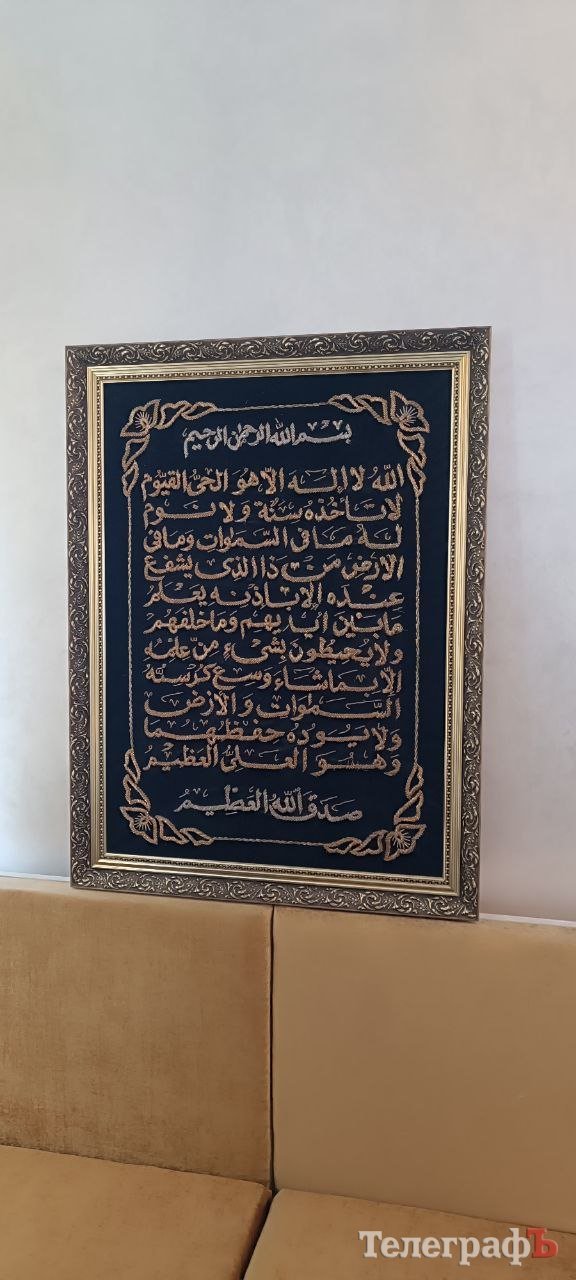 بسم الله الرحمن الرحيم
الله لا اله الا هو الحي القيوم
لا تأخذه سنة ولا نوم
له ما في السموات وما في
الارض من ذا الذي يشفع
عنده الا باذنه يعلم
ما بين ايديهم وما خلفهم
ولا يحيطون بشيء من علمه
الا بما شاء وسع كرسيه
السموات والارض
ولا يوده حفظهما
وهو العلي العظيم
صدق الله العظيم
ТелеграфЪ